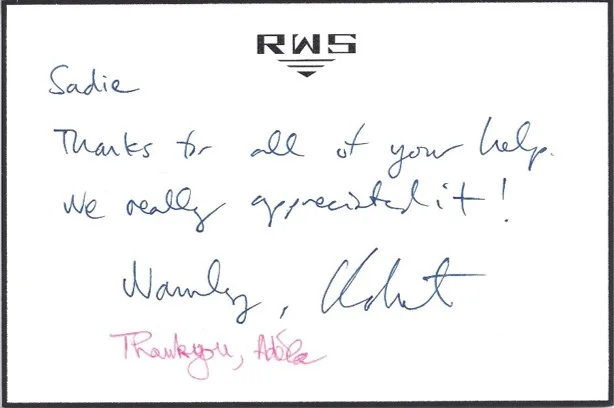 RWS
Sadie
Thanks for all of your help.
We really appreciated it!
Warmly,
Thankyou, Adèle